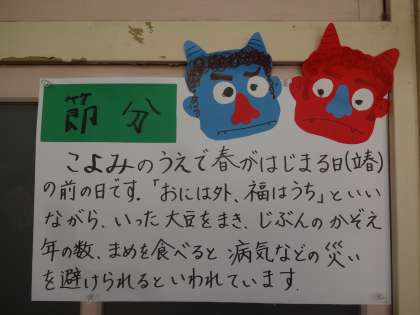 節分
こよみのうえで春がはじまる日(立春)
の前の日です.「おには外、福はうち」といい
ながら、いった大豆をまき、じぶんのかぞえ
年の数、まめを食べると病気などの災い
を避けられるといわれています.